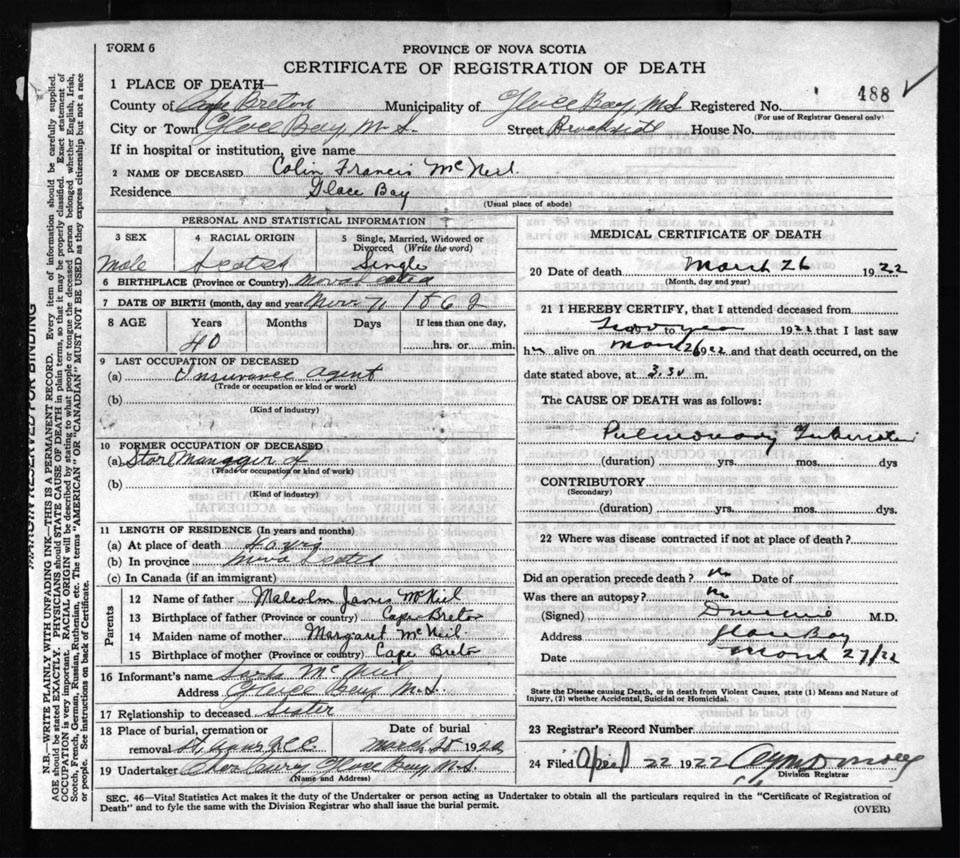 FORM 6
PROVINCE OF NOVA SCOTIA
CERTIFICATE OF REGISTRATION OF DEATH
1 PLACE OF DEATH—
County of Cape Breton Municipality of Glace Bay, N.S. Registered No. 488
(For use of Registrar General only)
City or Town Glace Bay N.S. Street Brookside House No.
If in hospital or institution, give name
2 NAME OF DECEASED Colin Francis McNeil
Residence Glace Bay
(Usual place of abode)
PERSONAL AND STATISTICAL INFORMATION
3 SEX
Male
4 RACIAL ORIGIN
Scotch
5 Single, Married, Widowed or Divorced (Write the word)
Single
6 BIRTHPLACE (Province or Country) Nova Scotia
7 DATE OF BIRTH (month, day and year)
8 AGE Years Months Days If less than one day,
40 hrs. or min.
9 LAST OCCUPATION OF DECEASED
(a) Insurance Agent
(Trade or occupation or kind of work)
(b)
(Kind of industry)
10 FORMER OCCUPATION OF DECEASED
(a) Store Manager
(Trade or occupation or kind of work)
(b)
(Kind of industry)
11 LENGTH OF RESIDENCE (In years and months)
(a) At place of death
(b) In province Nova Scotia
(c) In Canada (if an immigrant)
Parents
12 Name of father Malcolm James McNeil
13 Birthplace of father (Province or country) Cape Breton
14 Maiden name of mother Margaret McNeil
15 Birthplace of mother (Province or country) Cape Breton
16 Informant's name McNeil
Address Glace Bay N.S.
17 Relationship to deceased Sister
18 Place of burial, cremation or removal
Date of burial
March 1922
19 Undertaker Chas Curry Glace Bay, N.S.
(Name and Address)
MEDICAL CERTIFICATE OF DEATH
20 Date of death March 26 1922
(Month, day and year)
21 I HEREBY CERTIFY, that I attended deceased from
to 1922 that I last saw
him alive on March 26 1922 and that death occurred, on the
date stated above, at 3.30 m.
The CAUSE OF DEATH was as follows:
Pulmonary Tuberculosis
(duration) yrs. mos. dys
CONTRIBUTORY
(Secondary)
(duration) yrs. mos. dys.
22 Where was disease contracted if not at place of death?
Did an operation precede death? No Date of
Was there an autopsy? No
(Signed) M.D.
Address Glace Bay
Date March 27/22
State the Disease causing Death, or in death from Violent Causes, state (1) Means and Nature of
Injury, (2) whether Accidental, Suicidal or Homicidal.
23 Registrar's Record Number
24 Filed April 22 1922
Division Registrar
SEC. 46—Vital Statistics Act makes it the duty of the Undertaker or person acting as Undertaker to obtain all the particulars required in the "Certificate of Registration of
Death" and to fyle the same with the Division Registrar who shall issue the burial permit.
(OVER)
MARGIN RESERVED FOR BINDING
N.B.—WRITE PLAINLY, WITH UNFADING INK—THIS IS A PERMANENT RECORD. Every item of information should be carefully supplied.
AGE should be stated EXACTLY. PHYSICIANS should STATE CAUSE OF DEATH in plain terms, so that it may be properly classified. Exact statement of
OCCUPATION is very important. RACIAL ORIGIN will be described by stating to what people or tongue the deceased person belonged whether English, Irish,
Scotch, French, German, Russian, Ruthenian, etc. The terms "AMERICAN" OR "CANADIAN" MUST NOT BE USED as they express citizenship but not a race
or people. See instructions on back of Certificate.